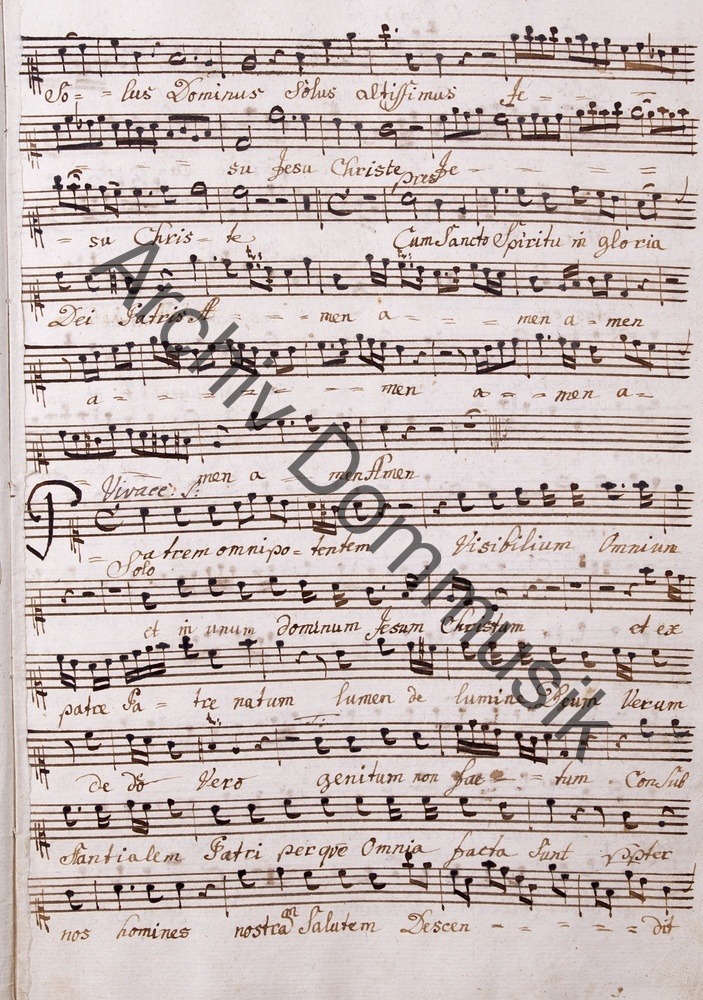 So = = lus Dominus Solus altissimus Je - - =
- - - - su Jesu Christe Je - - - - =
pres
= su Chris = te Cum Sancto Spiritu in gloria
Dei Patris A = - - - men a - - - - men a - men
a = - = - = - - men a - - men a =
= - men a - men Amen
Vivace: S:
P = atrem omnipo = tentem Visibilium Omnium
Solo
et in unum dominum Jesum Christum et ex
patre Pa - tre natum lumen de lumine Deum Verum
de do Vero genitum non fac = - = tum Consub
stantialem Patri per que Omnia facta Sunt
nos homines nostram Salutem Descen - - = = = dit
Archiv Dommusik